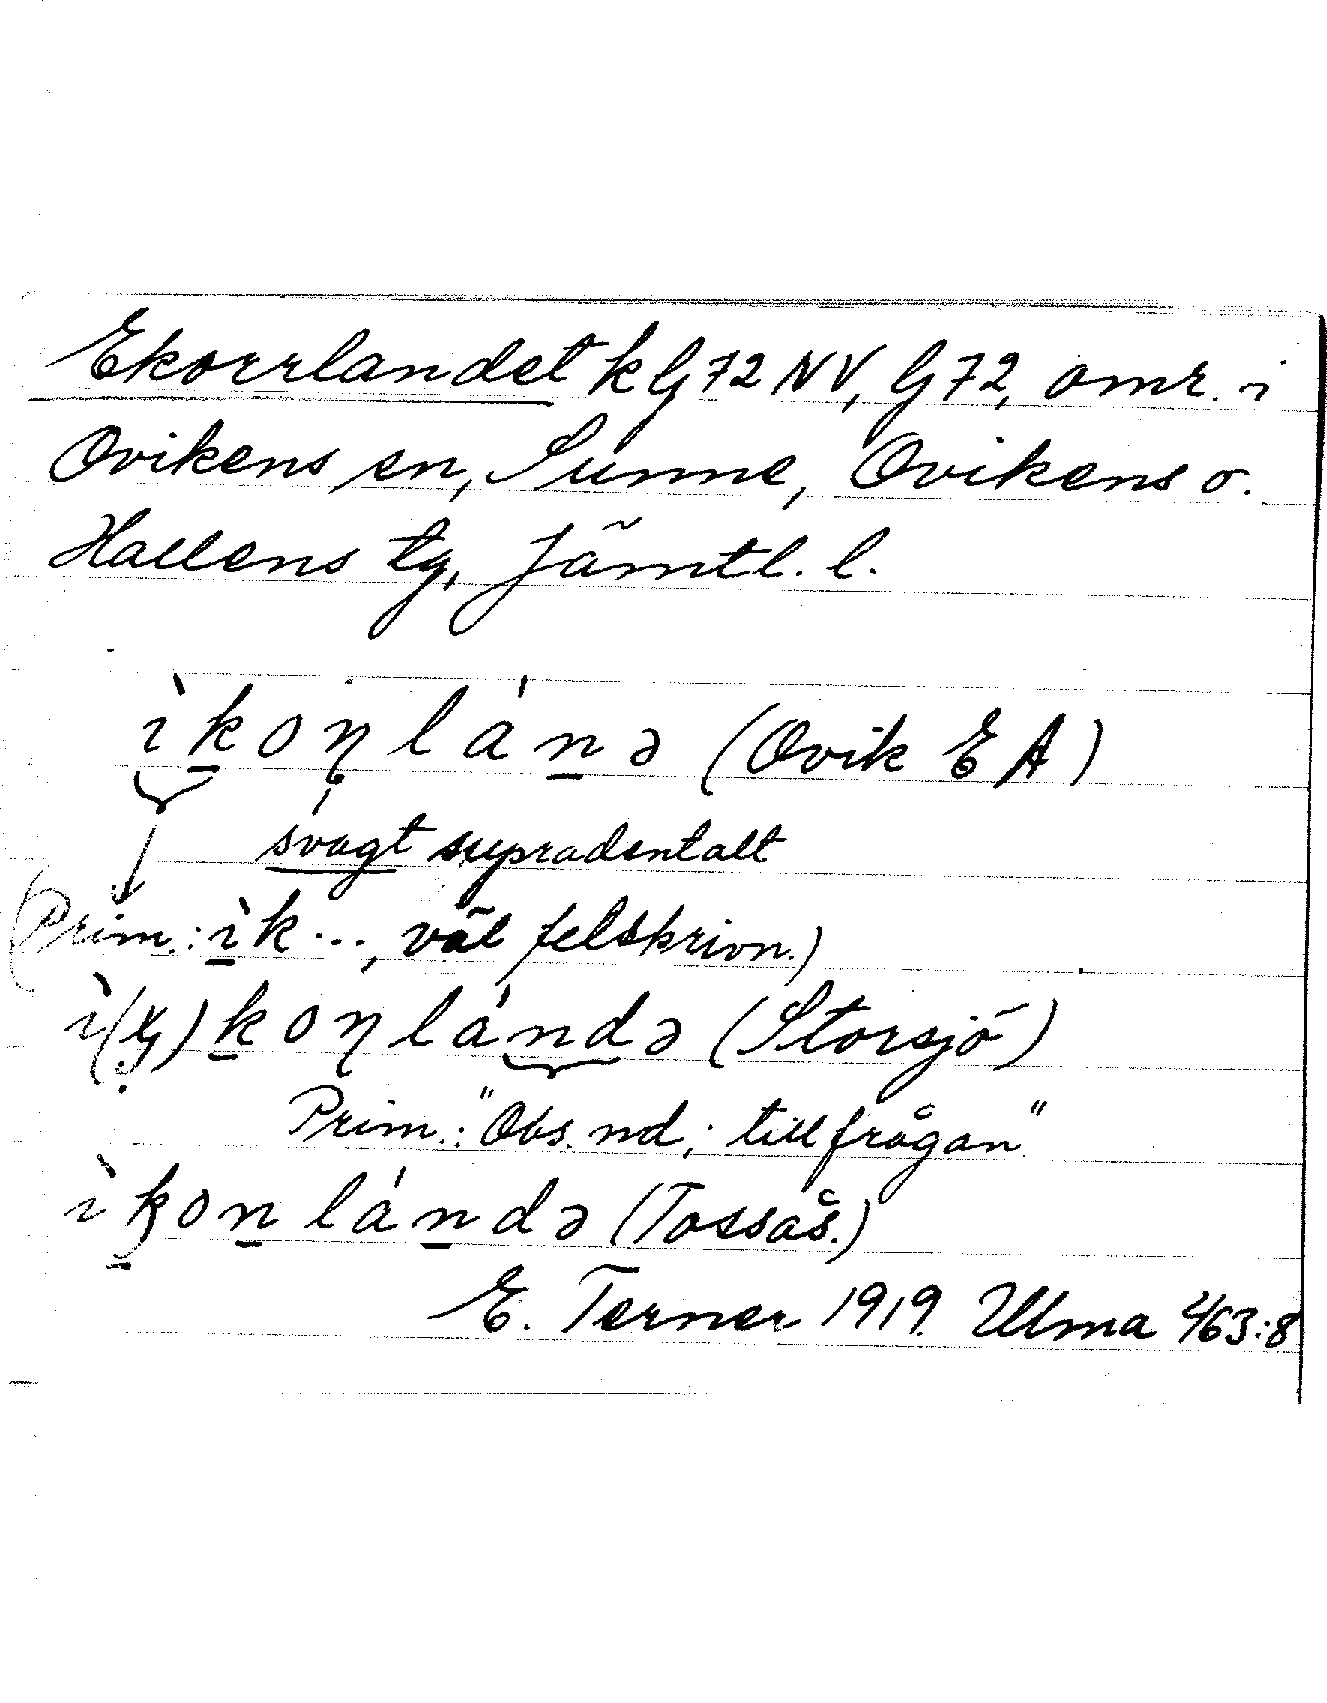 Ekorrlandet k G 72 NV, G 72, omr. i
Ovikens sn, Sunne, Ovikens o.
Hallens tg, Jämtl. l.
ìk̲oꞑlán̲ə (Ovik E A)
svagt supradentalt
(Prim.: ì̲k..., väl felskrivn.)
k̲oꞑlán̲d̲ə (Storsjö)
Prim.: "Obs. nd; tillfrågan"
ìk̲on̲lán̲də (Tossås.)
E. Terner 1919. Ulma 463:8